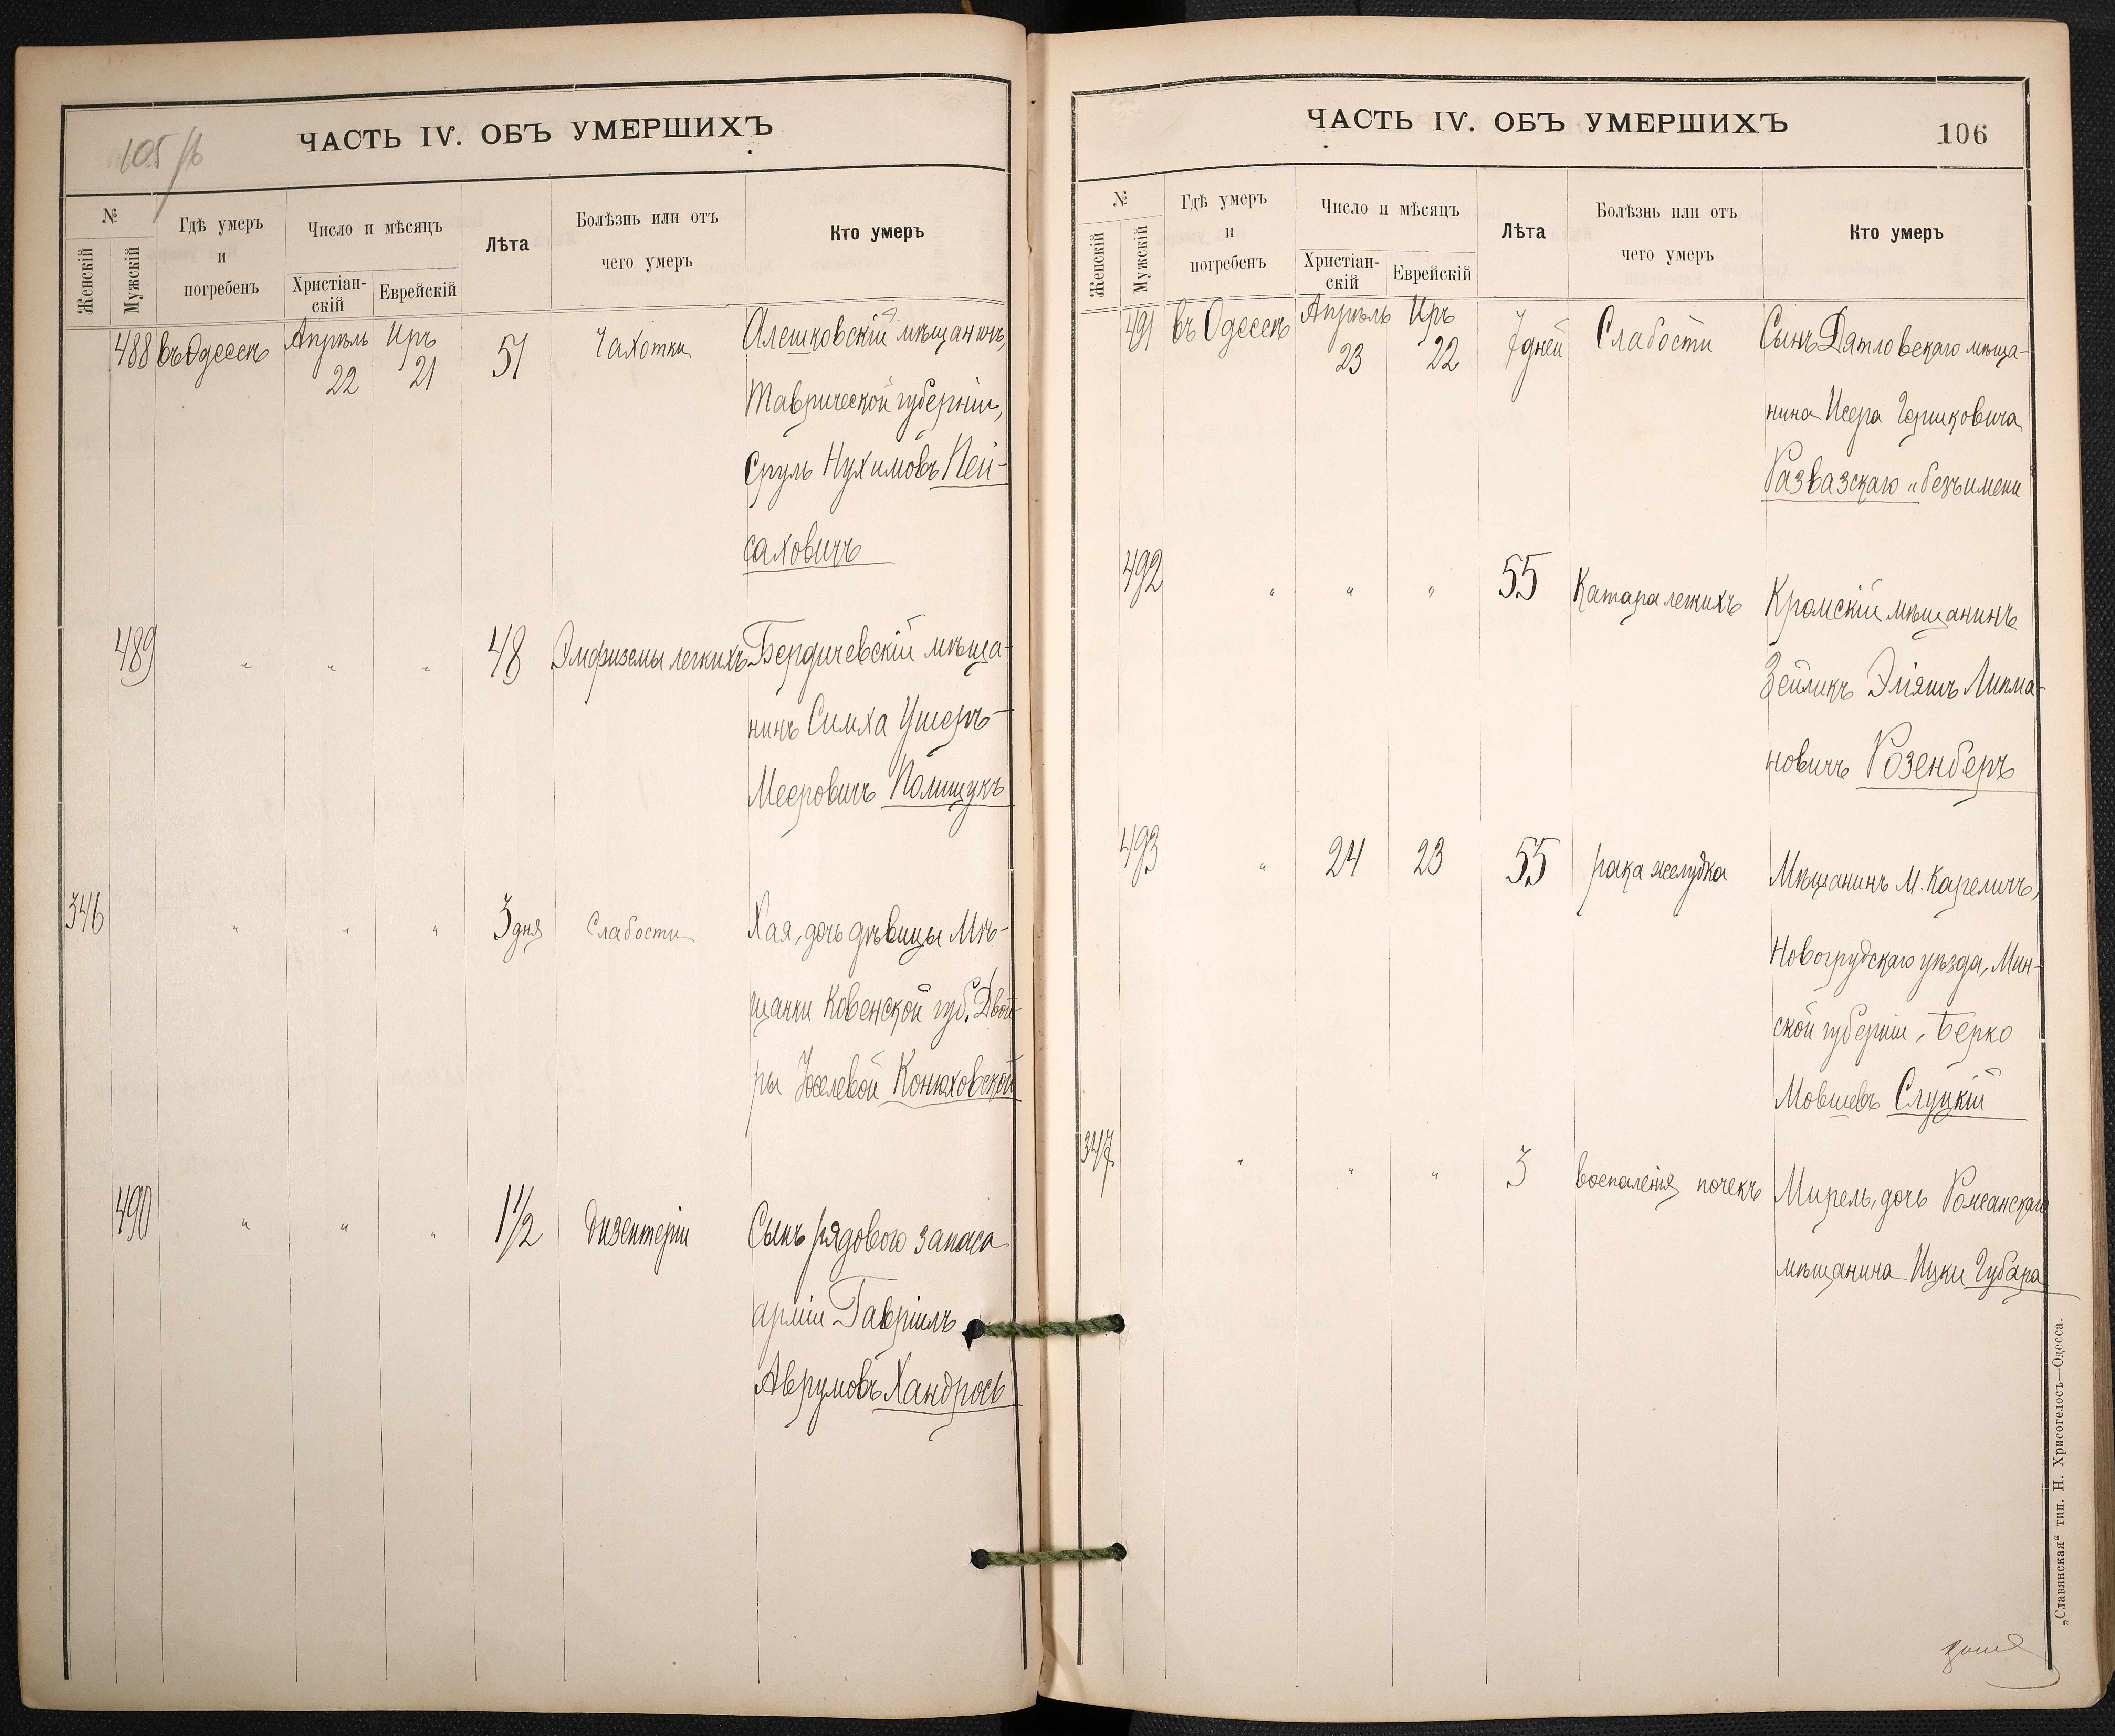 105 /b
ЧАСТЬ IV. ОБЪ УМЕРШИХЪ
№
Женскій
Мужскій
Гдѣ умеръ
и
погребенъ
Число и мѣсяцъ
Христіан-
скій
Еврейскій
Лѣта
Болѣзнь или отъ
чего умеръ
Кто умеръ
488 въ Одессѣ Апрѣль 22 Иръ 21 51 Чахотки Алешковскій мѣщанинъ,
Таврической губерніи,
Сруль Нухимовъ Пей-
саховичъ
489 " " " 48 Эмфиземы легкихъ Бердичевскій мѣща-
нинъ Симха Ушеръ
Мееровичъ Полищукъ
346 " " " 3 дня Слабости Хая, дочь дѣвицы Мѣ-
щанки Ковенской губ. Двой-
ры Іоселевой Конюховской
490 " " " 1 1/2 Дизентеріи Сынъ рядового запаса
арміи Гавріилъ
Аврумовъ Хандрось
ЧАСТЬ IV. ОБЪ УМЕРШИХЪ
106
№
Женскій
Мужскій
Гдѣ умеръ
и
погребенъ
Число и мѣсяцъ
Христіан-
скій
Еврейскій
Лѣта
Болѣзнь или отъ
чего умеръ
Кто умеръ
491 въ Одессѣ Апрѣль 23 Иръ 22 7 дней Слабости Сынъ Дятловскаго мѣща-
нина Исера Гершковича
Развазскаго "безъ имени
492 " " " 55 Катара легкихъ Кромскій мѣщанинъ
Зейликъ Эліяшъ Липма-
новичъ Розенберъ
493 " 24 23 55 рака желудка Мѣщанинъ М. Кареличъ,
Новогрудскаго уѣзда, Мин-
ской губерніи, Берко
Мовшевъ Слуцкій
347 " " " 3 воспаленія почекъ Мирель, дочь Рожанскаго
мѣщанина Ицки Губара
„Славянская“ тип. Н. Хрисогелосъ—Одесса.